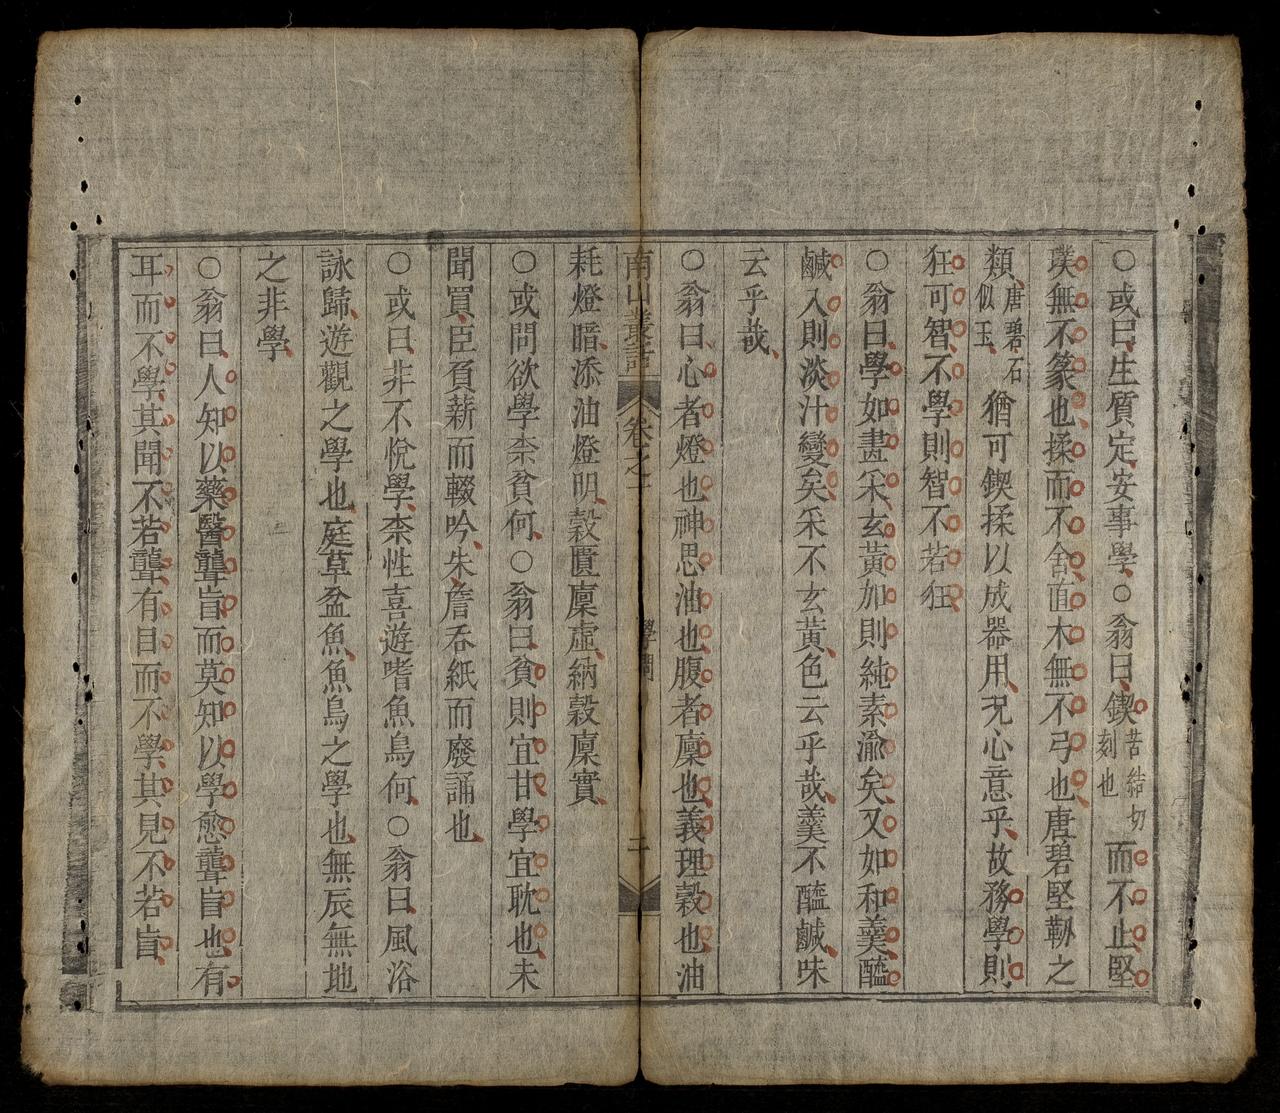 ○或曰生質定安事學○翁曰鍥苦結切刻也而不止堅
璞無不篆也揉而不舍直木無不弓也唐碧堅韌之
類唐碧石似玉猶可鍥揉以成器用况心意乎故務學則
狂可智不學則智不若狂
○翁曰學如畫采玄黃加則純素渝矣又如和羹醯
鹹入則淡汁變矣采不玄黃色云乎哉羹不醯鹹味
云乎哉
○翁曰心者燈也神思油也腹者廩也義理穀也油
南山叢話 卷之一 學 二
耗燈暗添油燈明穀匱廩虛納穀廩實
○或問欲學柰貧何○翁曰貧則宜甘學宜耽也未
聞買臣負薪而輟吟朱詹吞紙而廢誦也
○或曰非不悅學柰性喜遊嗜魚鳥何○翁曰風浴
詠歸遊觀之學也庭草盆魚魚鳥之學也無辰無地
之非學
○翁曰人知以藥醫聾盲而莫知以學愈聾盲也有
耳而不學其聞不若聾有目而不學其見不若盲